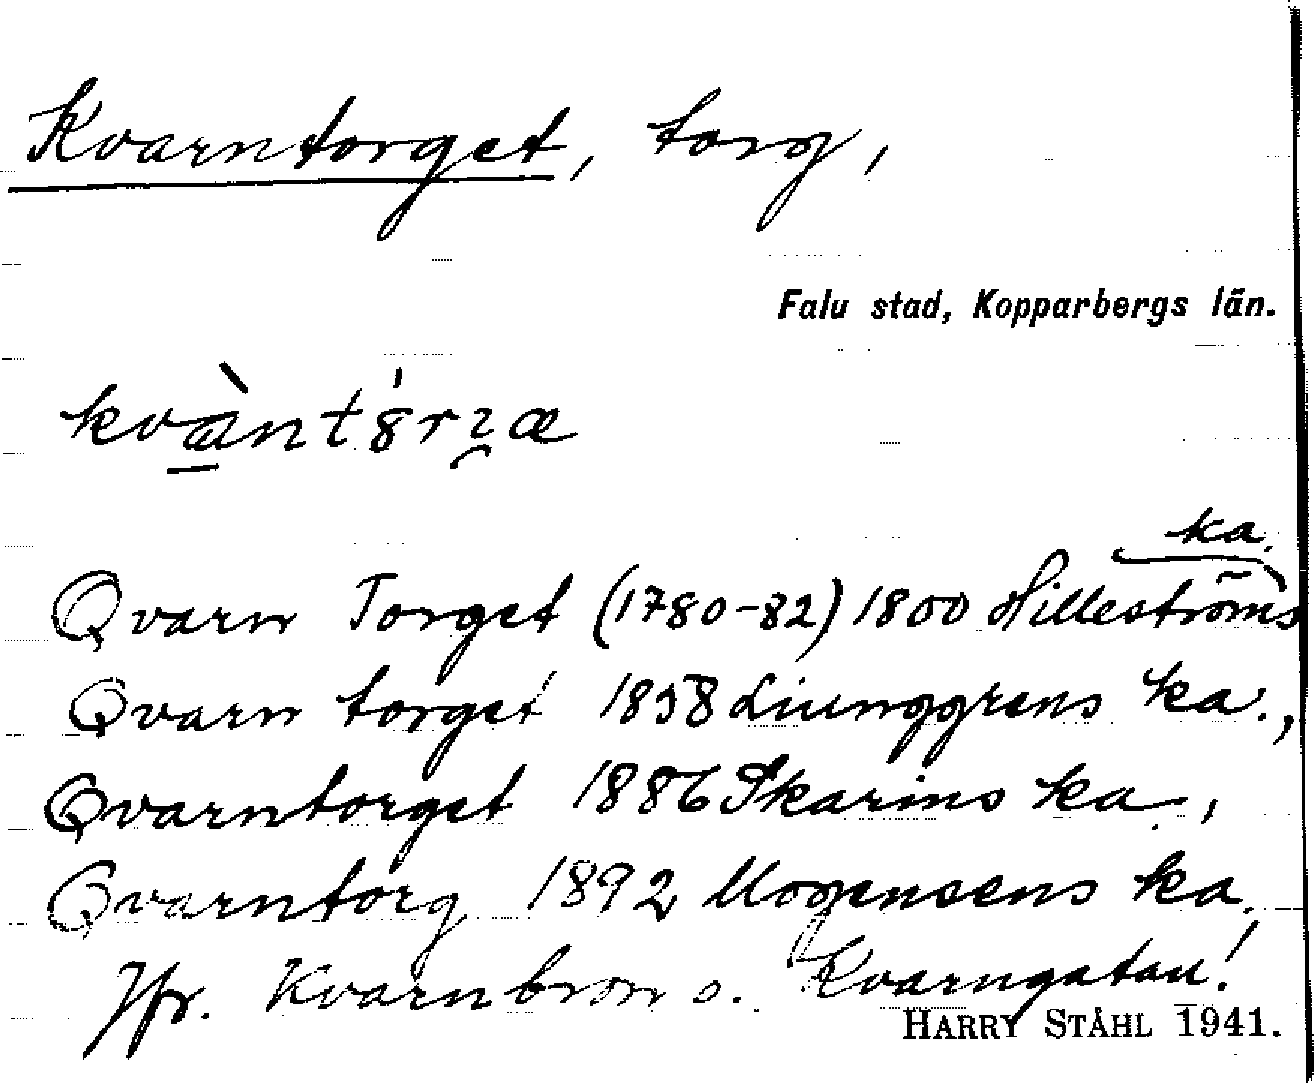 Kvarntorget, torg,
Falu stad, Kopparbergs län.
Qvarn Torget (1780-82) 1800 Hilleströms ka.
Qvarn torget 1858 Liunggrens ka.,
Qvarntorget 1886 Skarins ka.,
Qvarntorg 1892 Mogensens ka.
Jfr. Kvarnbron o. Kvarngatan!
HARRY STÅHL 1941.